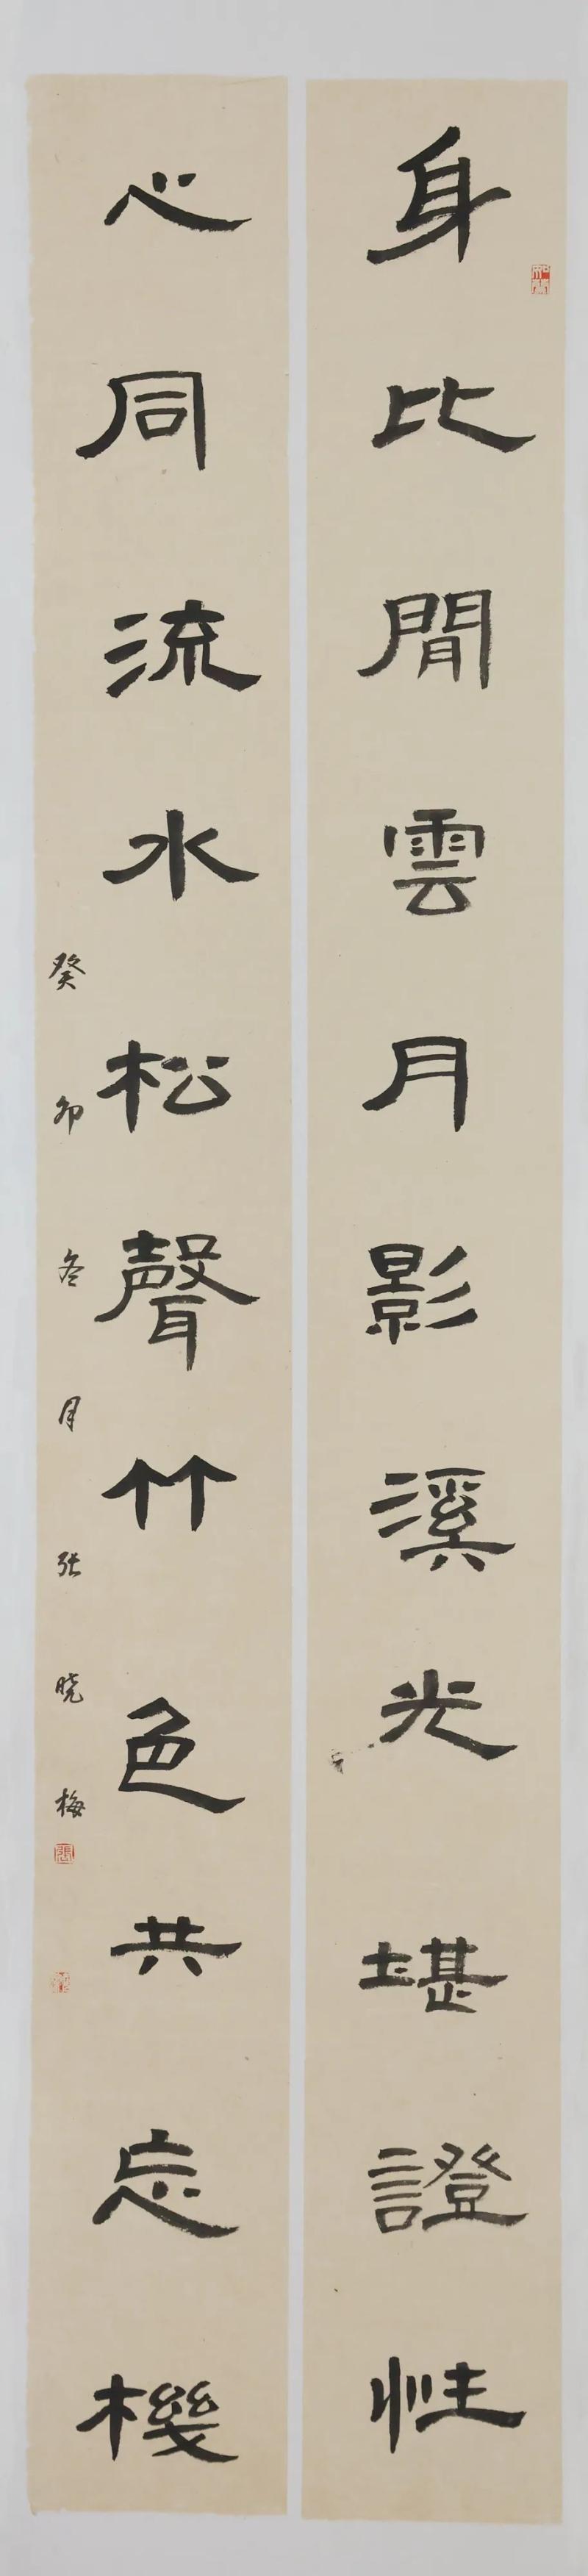 身比閒雲月影溪光堪證性
心同流水松聲竹色共忘機
癸卯冬月张晓梅
張